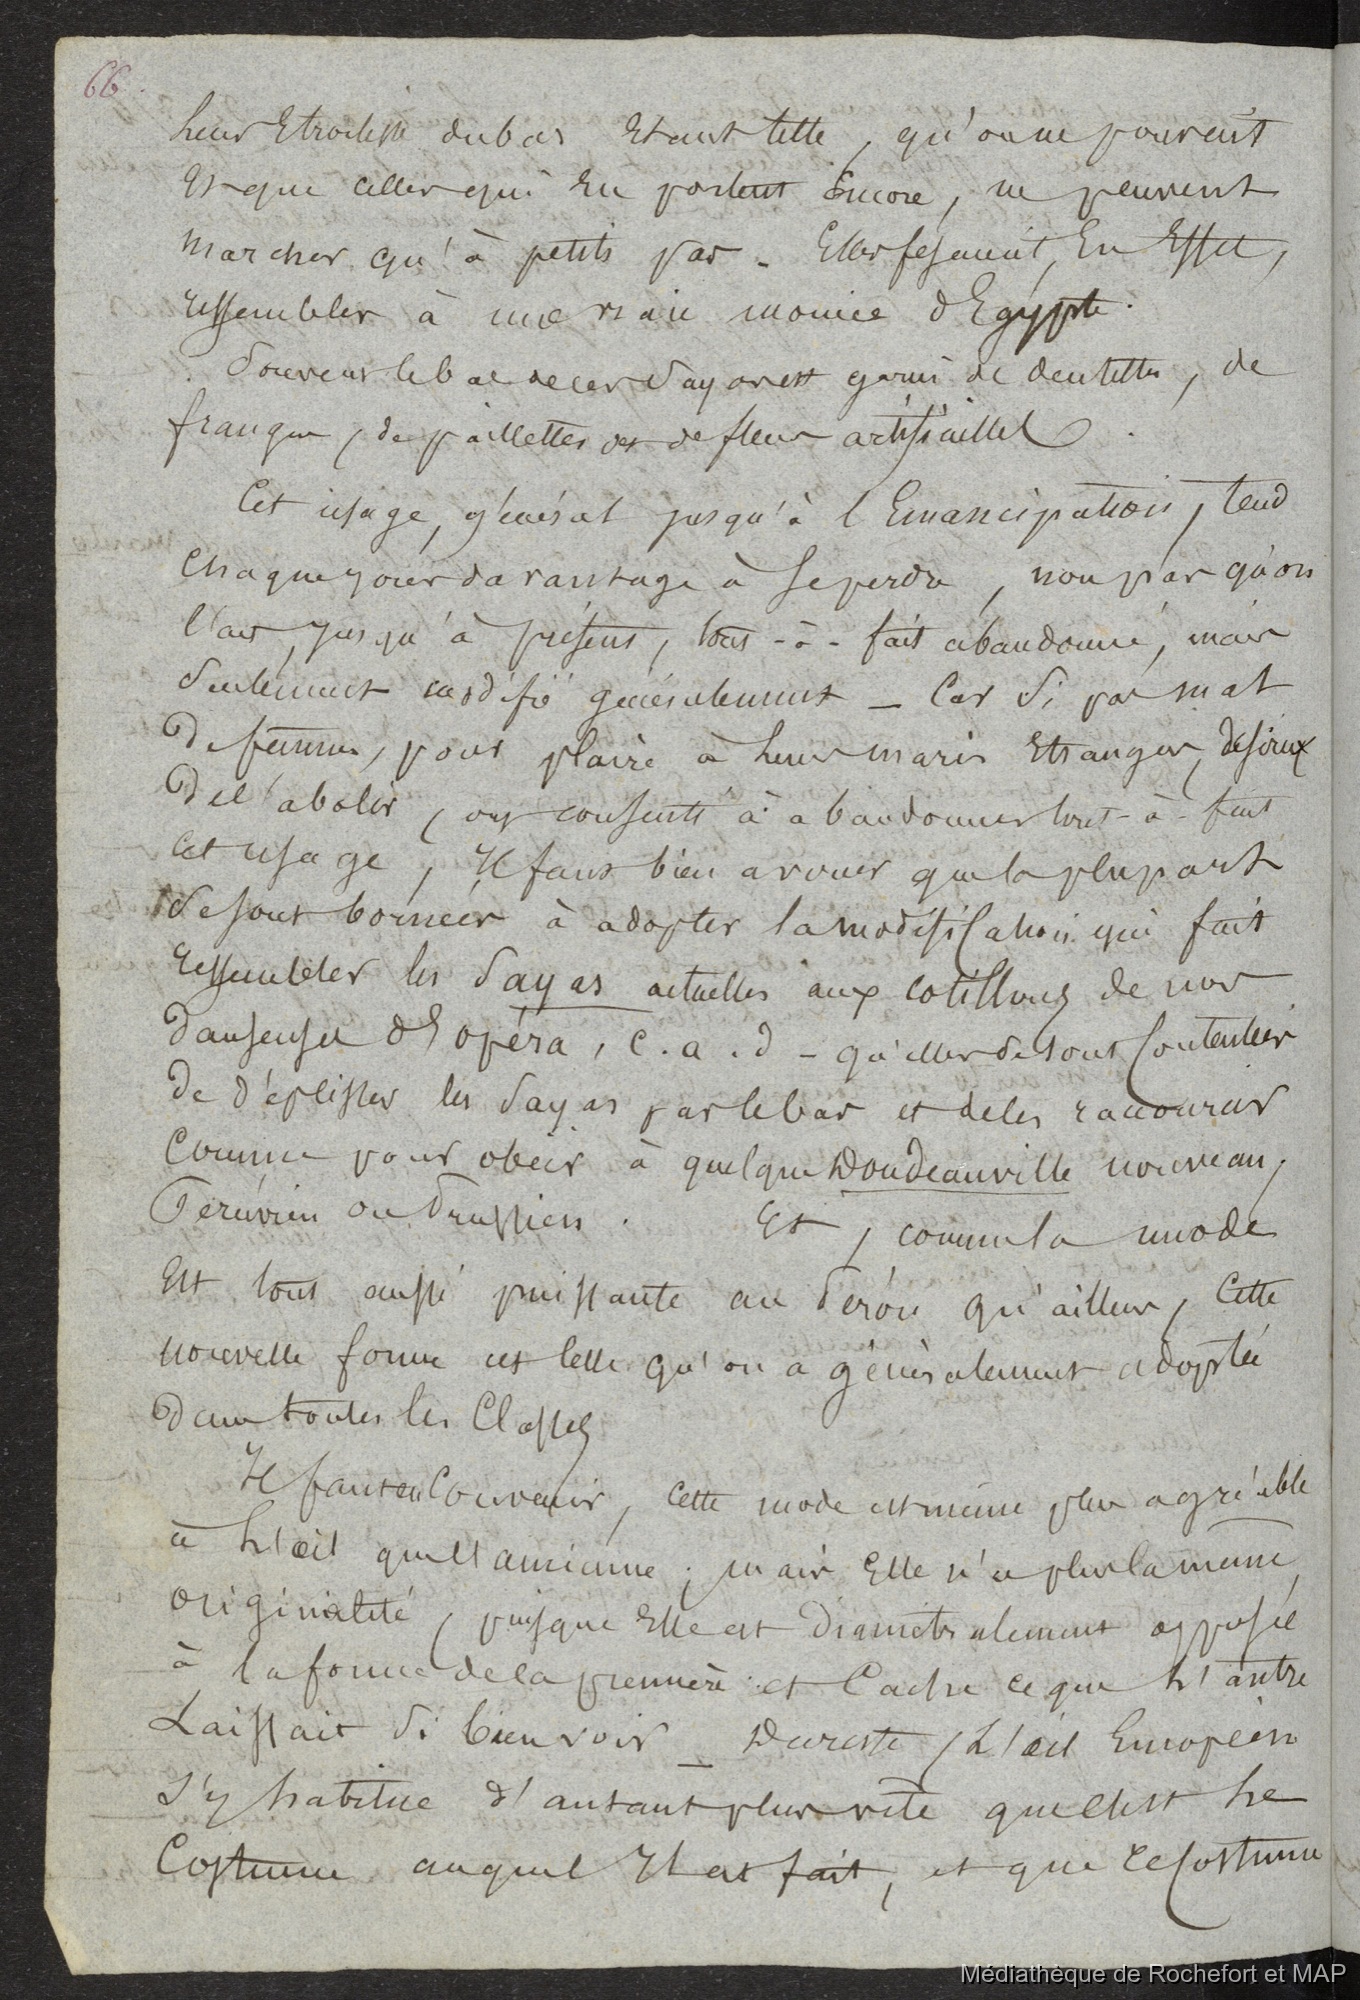 66
leur Etroitesse du bas Etant telle, qu'on ne pouvait
Et que celles qui En portent Encore, ne peuvent
marcher qu'à petits pas. Elles fesaient, En Effet,
ressembler à une vraie momie d'Egypte.
Souvent le bas de ces Sayas est garni de dentelles, de
franges, de paillettes et de fleurs artificielles.
Cet usage, général jusqu'à l'Emancipation, tend
chaque jour davantage à se perdre, non pas qu'on
l'ait, jusqu'à présent, tout-à-fait abandonné, mais
Seulement modifié généralement _ Car Si pas mal
De femmes, pour plaire à leurs maris Etrangers, desireux
De l'abolir, ont consenti à abandonner tout-à-fait
cet usage, Il faut bien avouer que la plupart
Se sont bornées à adopter la modification qui fait
ressembler les Sayas actuelles aux cotillons de nos
Danseuses d'opéra, c.a.d - qu'elles se sont Contentées
De déplisser les Sayas par le bas et de les raccourcir
Comme pour obéir à quelque Doudeauville nouveau,
Péruvien ou Prussien. Et, comme la mode
Est tout aussi puissante au Pérou qu'ailleurs, Cette
nouvelle forme est celle qu'on a généralement adoptée
Dans toutes les Classes
Il faut en Convenir, cette mode est même plus agréable
à l'œil que l'ancienne; mais Elle n'a plus la même
originalité, puisque Elle est Diamétralement opposée
à la forme de la première et Cache ce que l'autre
Laissait Si bien voir _ Du reste, L'œil Européen
S'y habitue d'autant plus vite que c'est le
Costume auquel Il est fait, et que ce Costume
Médiathèque de Rochefort et MAP